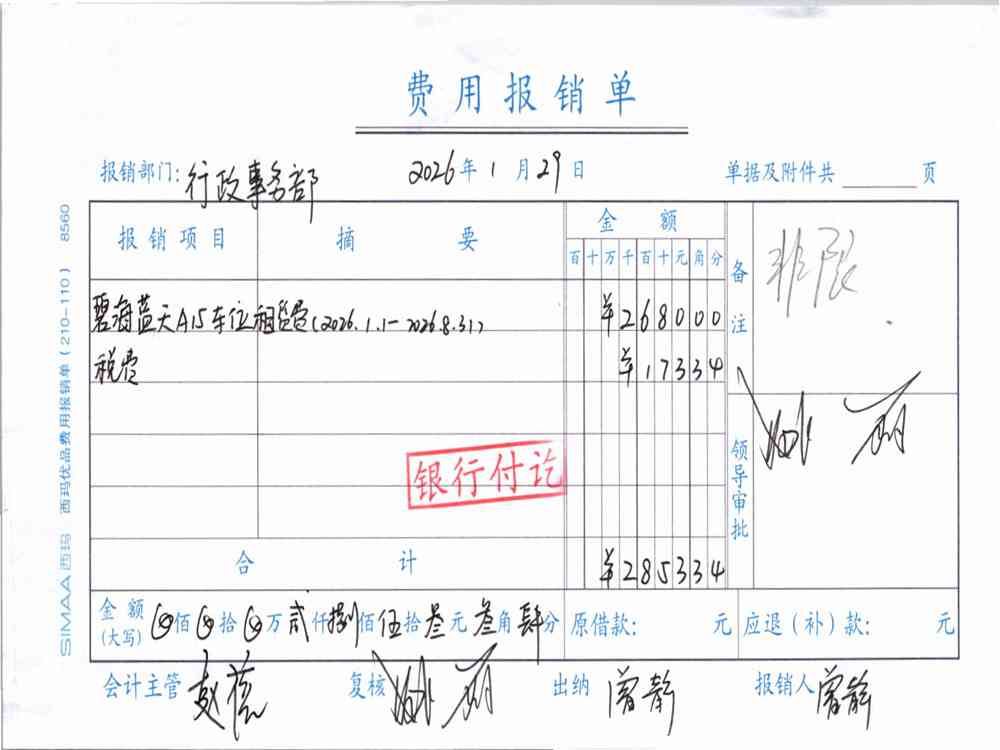 费用报销单
报销部门:行政事务部 2026年1月29日 单据及附件共 页
报销项目 摘要 金额 备注 非限
百十万千百十元角分
碧海蓝天A15车位租赁费(2026.1.1-2026.8.31) ¥268000
税费 ¥17334
银行付讫
领导审批
合计 ¥285334
金额(大写) 佰 拾 万贰仟捌佰伍拾叁元叁角肆分 原借款: 元 应退(补)款: 元
会计主管 复核 出纳 曾静 报销人 曾静
SIMAA西玛 西玛优品费用报销单(210-110) 8560